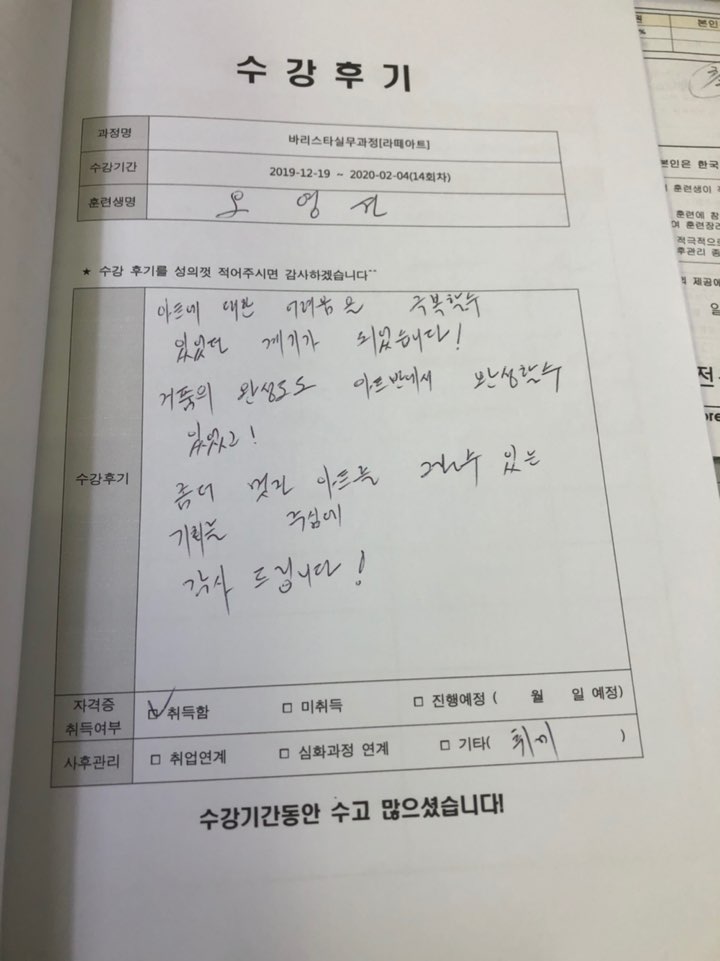 수강후기
과정명 바리스타실무과정[라떼아트]
수강기간 2019-12-19 ~ 2020-02-04(14회차)
훈련생명 오 영 선
★ 수강 후기를 성의껏 적어주시면 감사하겠습니다^^
아트에 대한 어려움을 극복할수
있었던 계기가 되었습니다!
거품의 완성도도 아트반에서 완성할수
있었고!
수강후기
좀더 멋진 아트를 그릴수 있는
기회를 주심에
감사 드립니다!
자격증
취득여부
☑ 취득함 □ 미취득 □ 진행예정 ( 월 일 예정)
사후관리 □ 취업연계 □ 심화과정 연계 □ 기타( )
수강기간동안 수고 많으셨습니다!
본인
%
본인은 한국
훈련생이
훈련에 참
여 훈련장려
적극적으로
후관리 종
제공에
일
전
ore